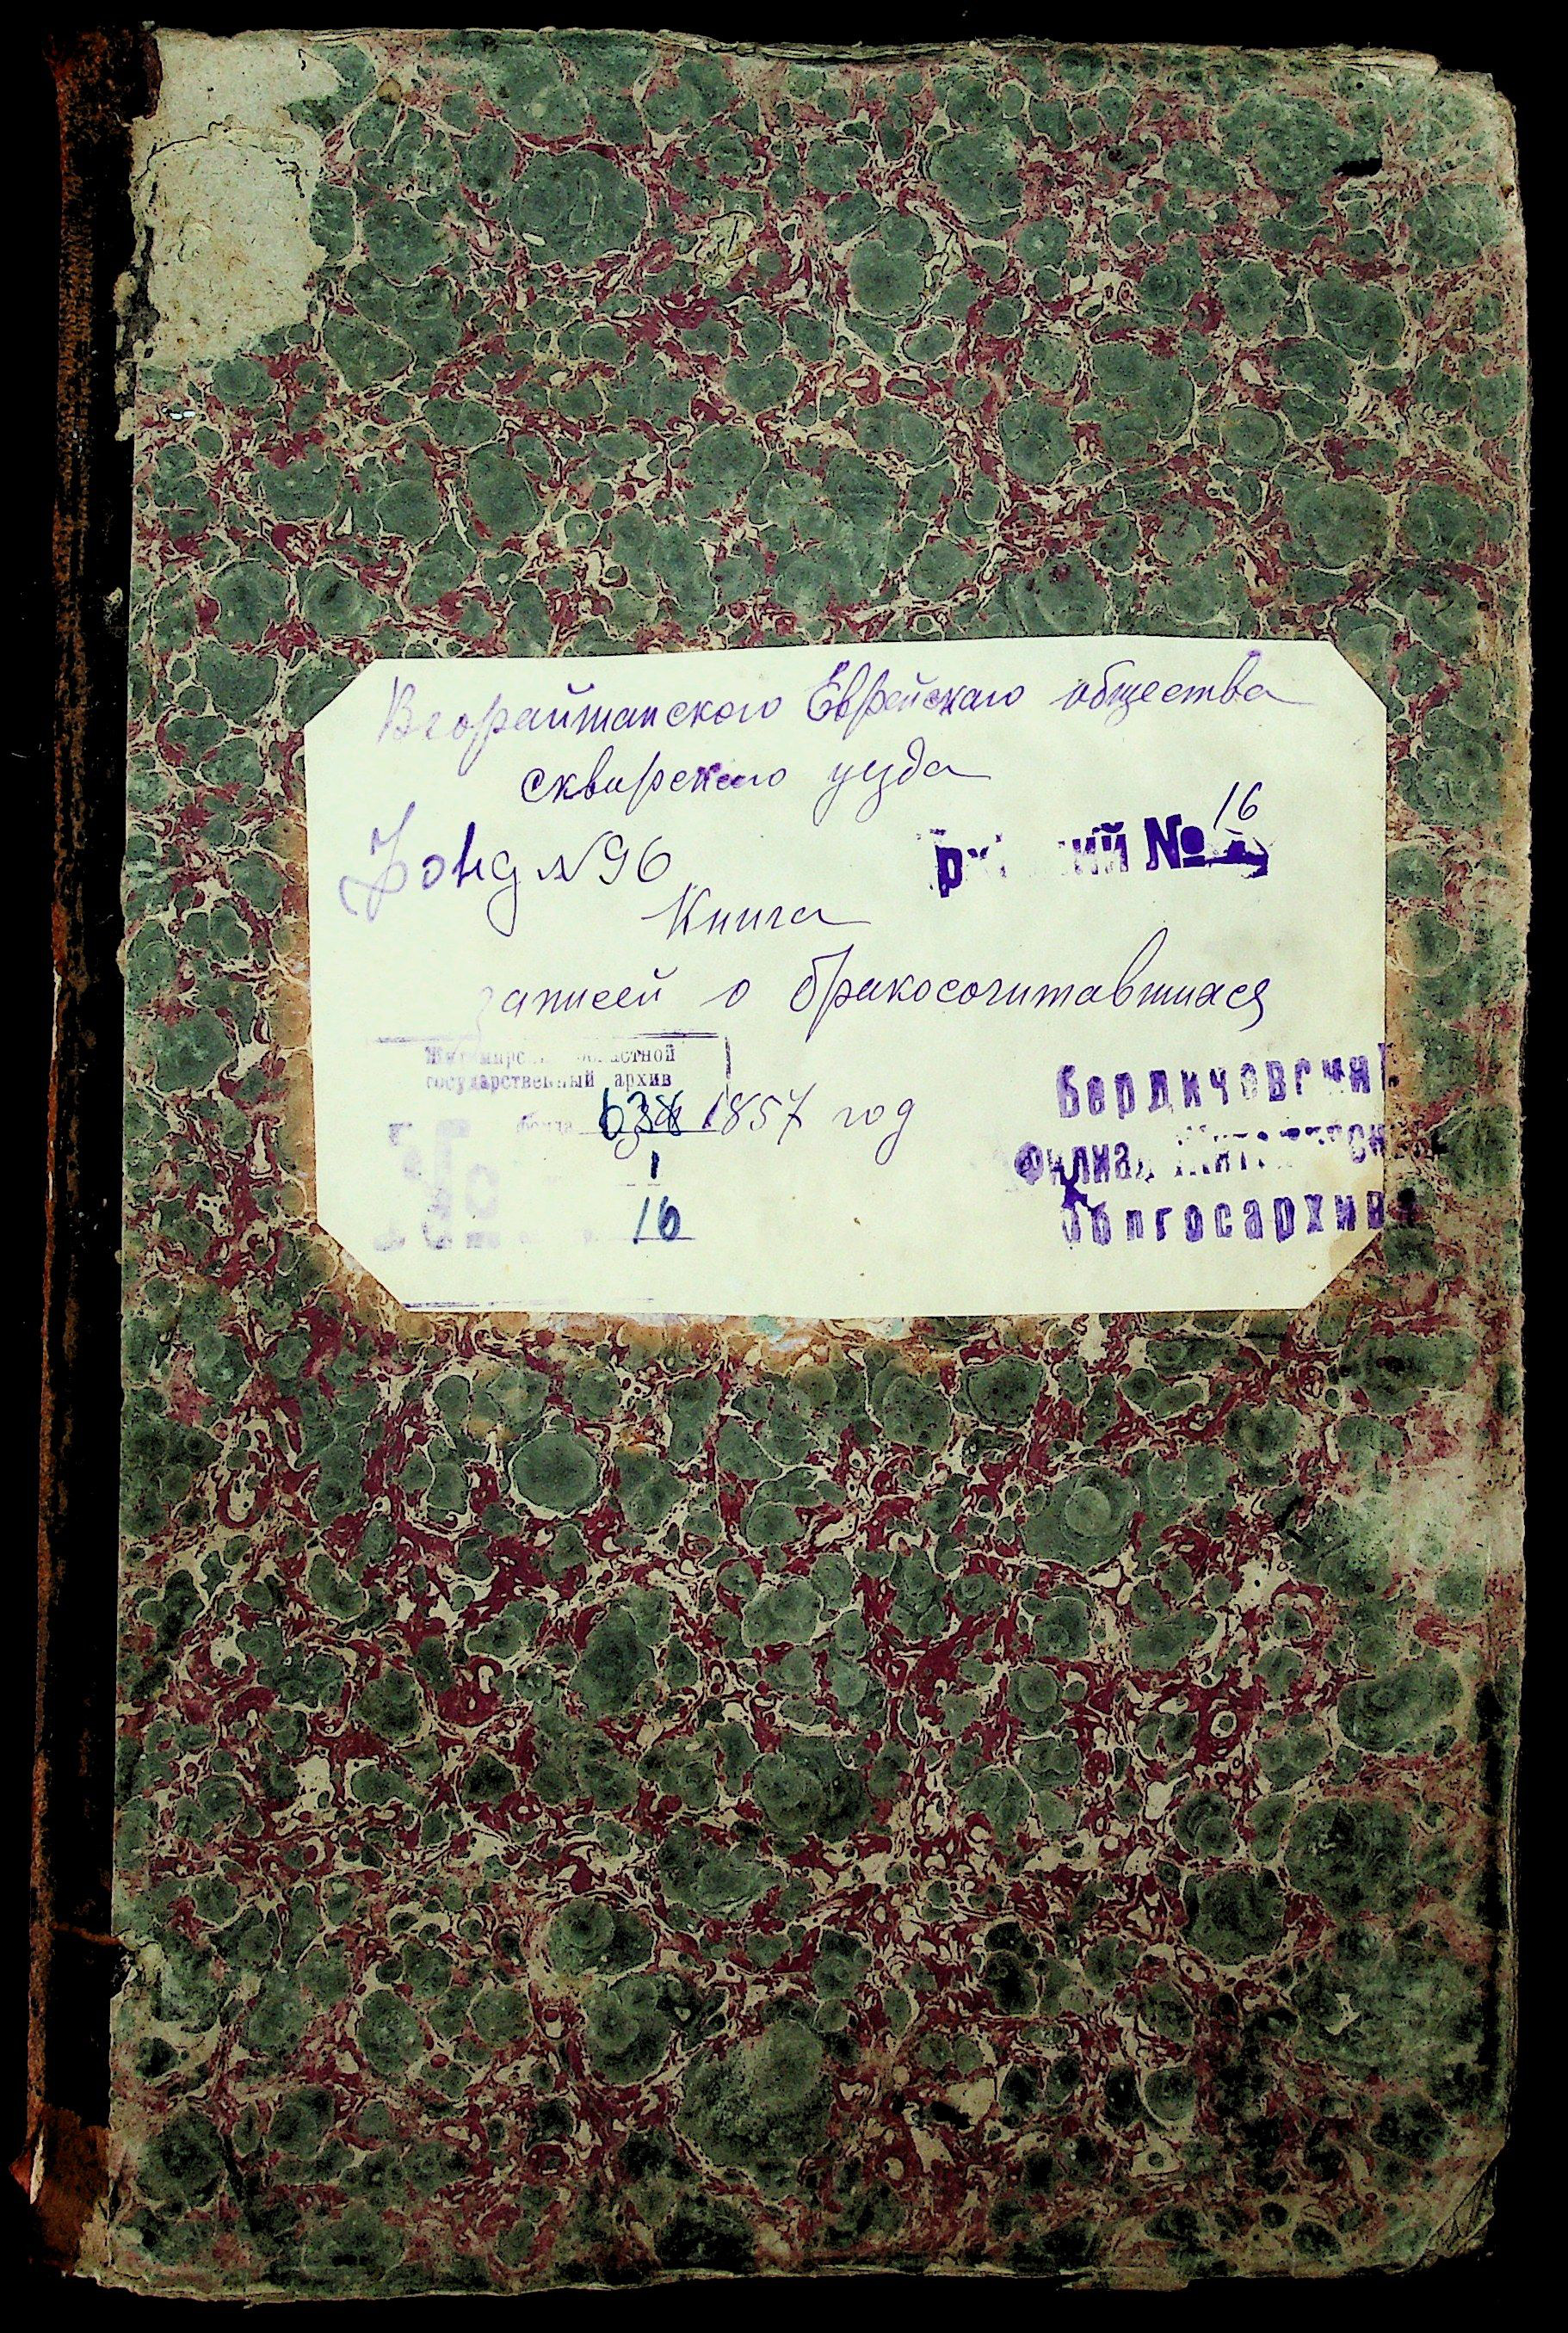 Вчорайшанского Еврейскаго общества
сквирского уезда
16
Фонд №96
№
Книга
записей о бракосочитавшихся
областной
государственный архив
фонда 638
1857 год
1
16
Бердичевский
филиал
Облгосархива